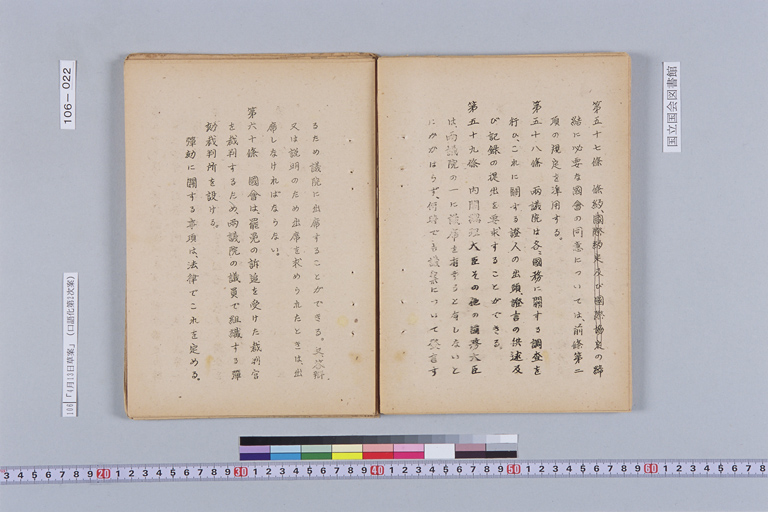 第五十七條　條約、國際約束及び國際協定の締
結に必要な國會の同意については、前條第二
項の規定を準用する。
第五十八條　兩議院は、各〻國務に關する調査を
行ひ、これに關する證人の出頭、證言の供述及
び記録の提出を要求することができる。
第五十九條　内閣總理大臣その他の國務大臣
は、両議院の一に議席を有すると有しないと
にかかはらず、何時でも議案について發言す
るため議院に出席することができる。又答辯
又は説明のため出席を求められたときは、出
席しなければならない。
第六十條　國會は、罷免の訴追を受けた裁判官
を裁判するため、両議院の議員で組織する彈
劾裁判所を設ける。
彈劾に關する事項は、法律でこれを定める。
国立国会図書館
106-022
106「4月13日草案」(口語化第1次案)
3 4 5 6 7 8 9 20 1 2 3 4 5 6 7 8 9 30 1 2 3 4 5 6 7 8 9 40 1 2 3 4 5 6 7 8 9 50 1 2 3 4 5 6 7 8 9 60 1 2 3 4 5 6 7 8